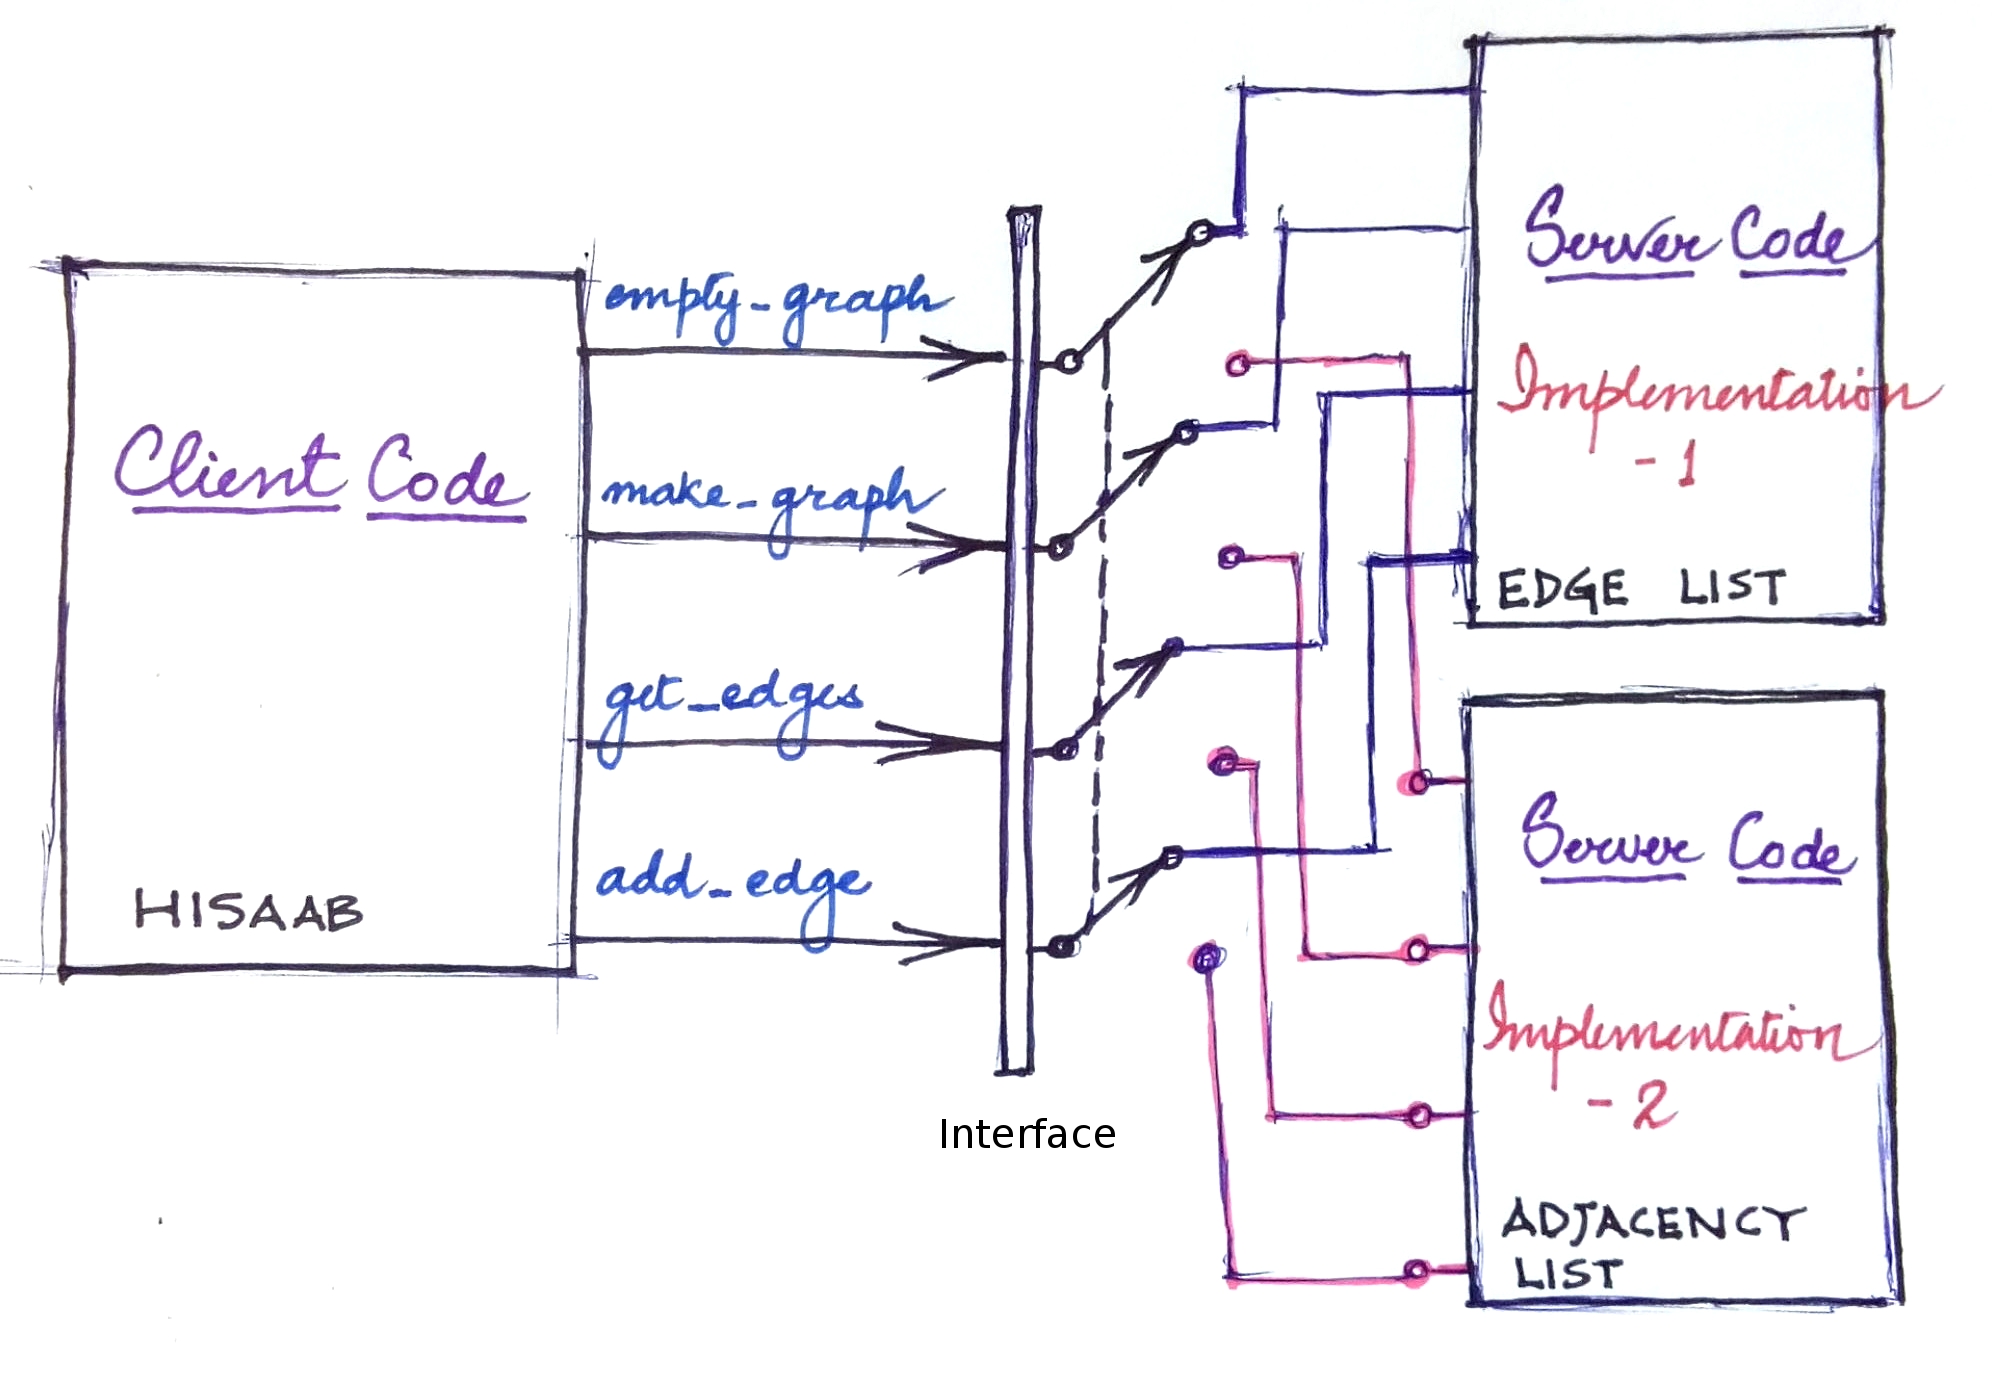 Client Code
HISAAB
empty_graph
make_graph
get_edges
add_edge
Interface
Server Code
Implementation
- 1
EDGE LIST
Server Code
Implementation
- 2
ADJACENCY
LIST